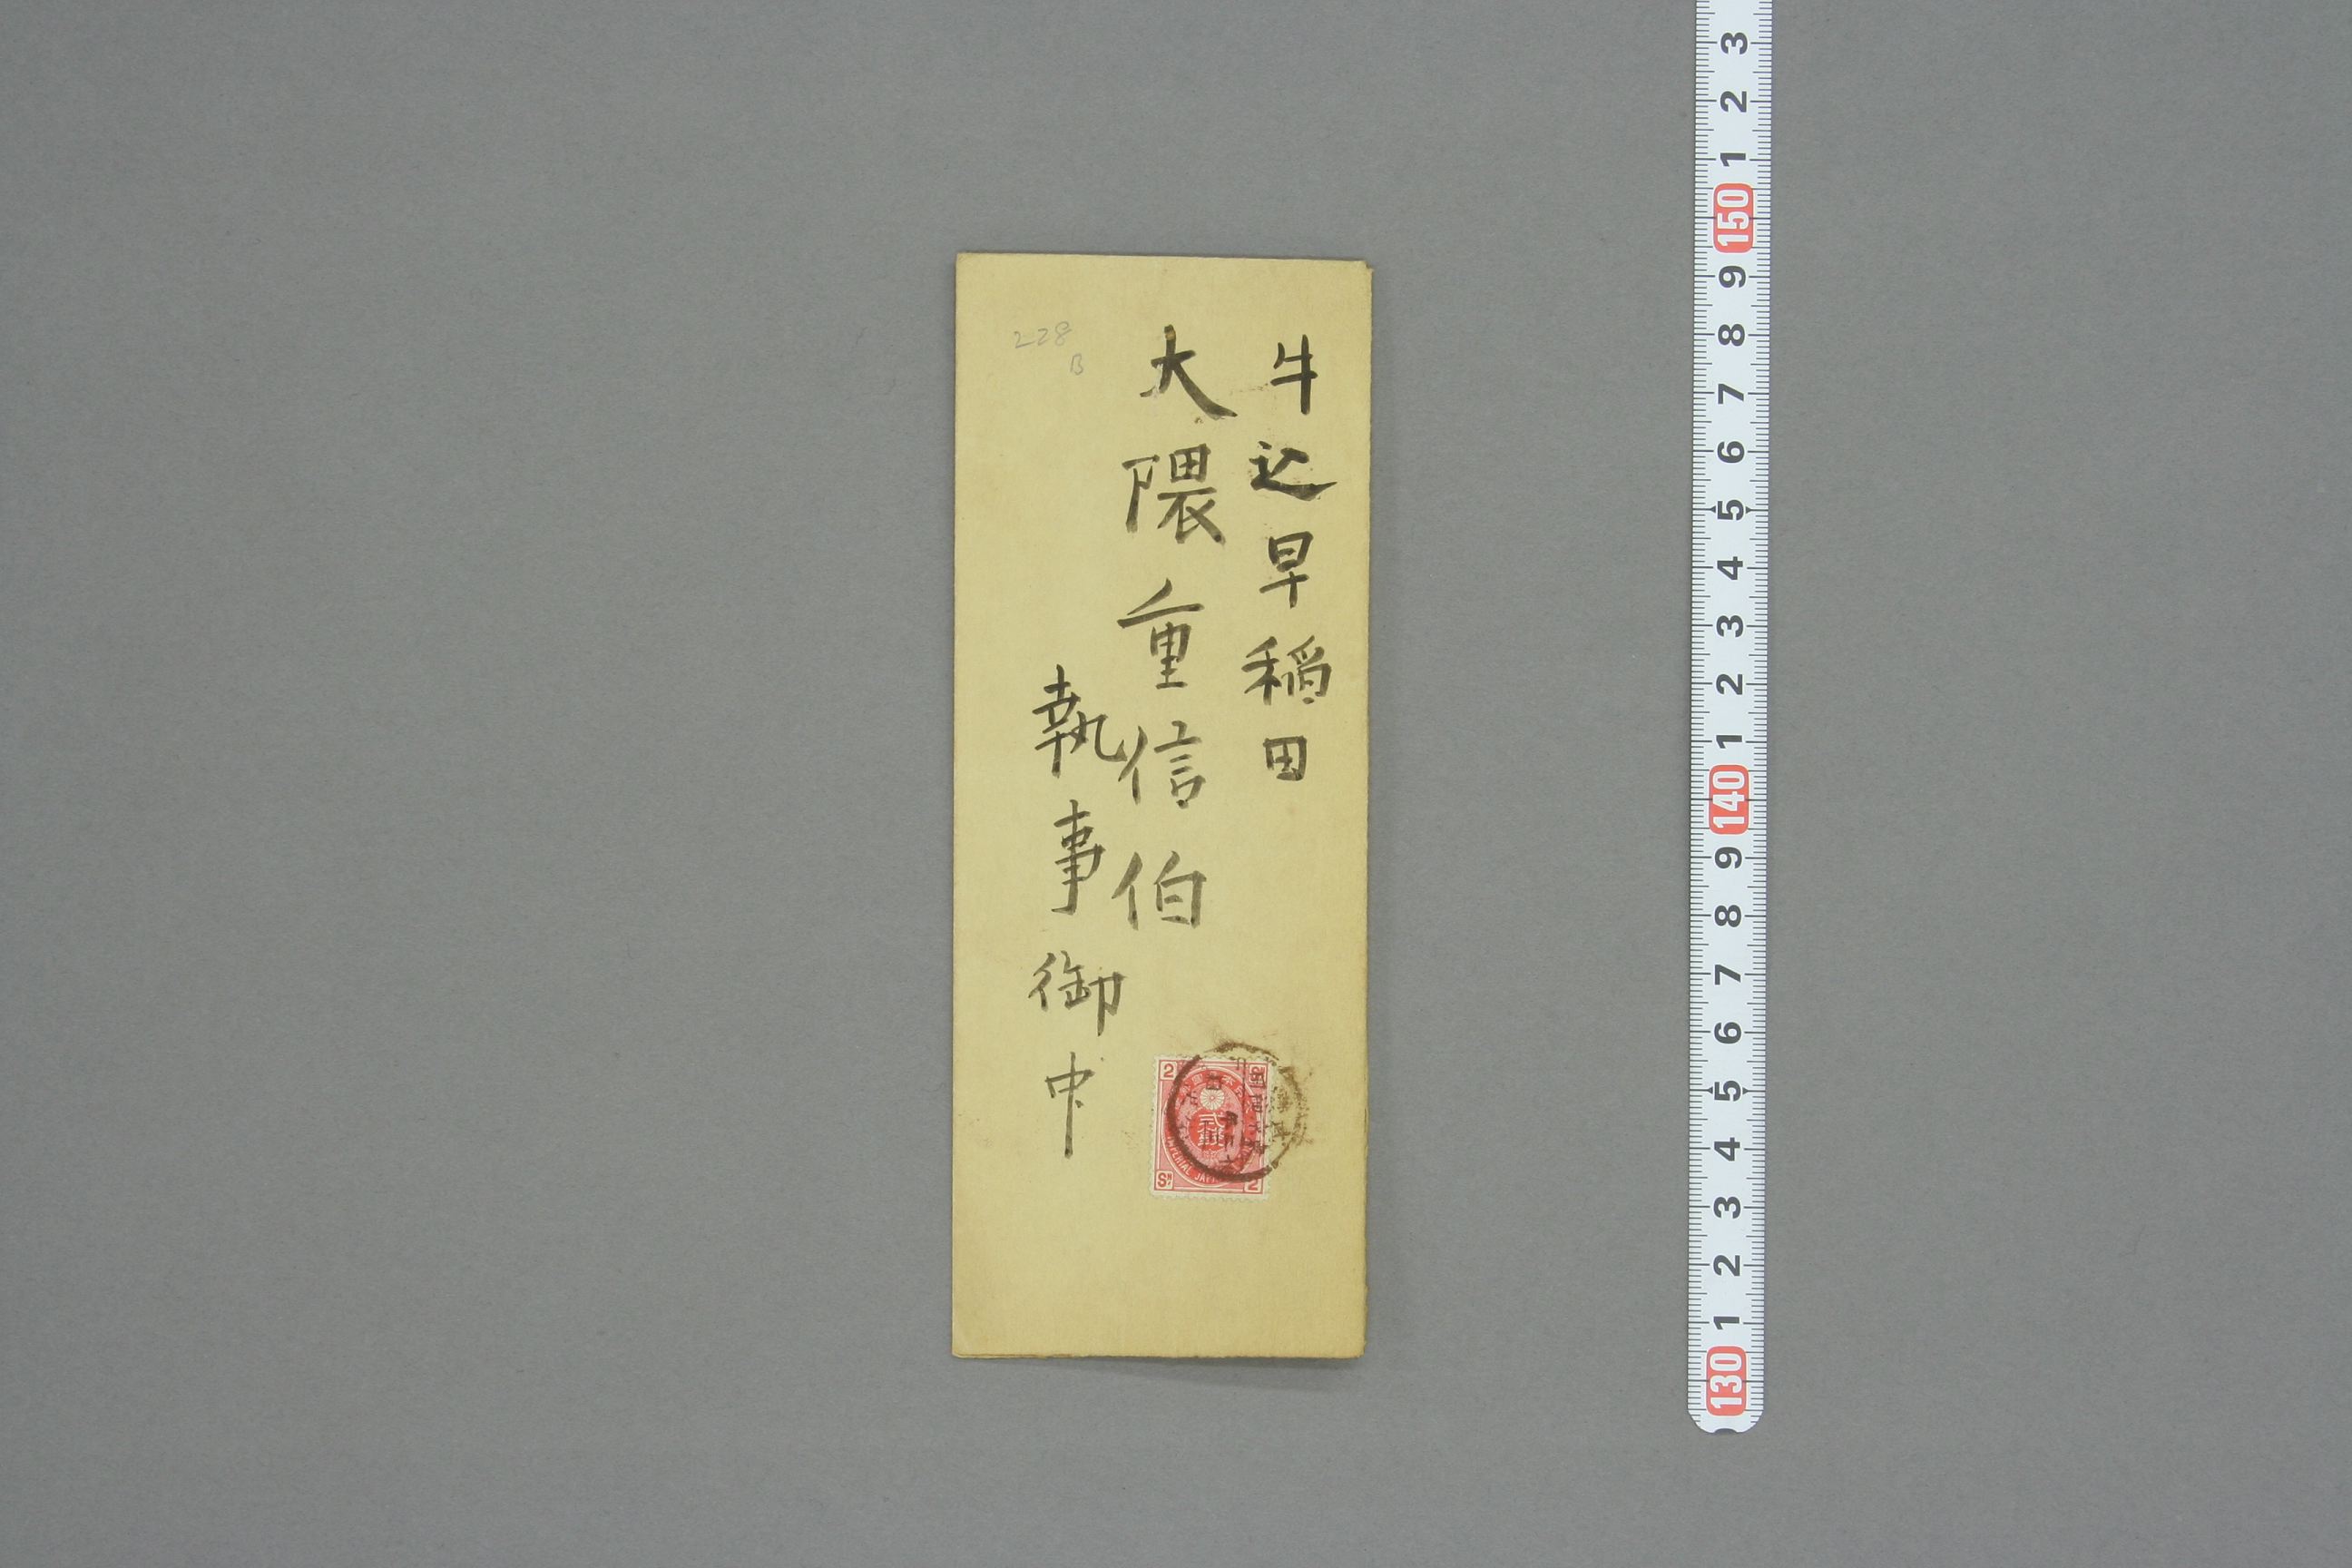 牛込早稲田
大隈重信伯
執事御中
228
B
2
貳銭
IMPERIAL JAP
Sn
2
3
2
1
150
9
8
7
6
5
4
3
2
1
140
9
8
7
6
5
4
3
2
1
130